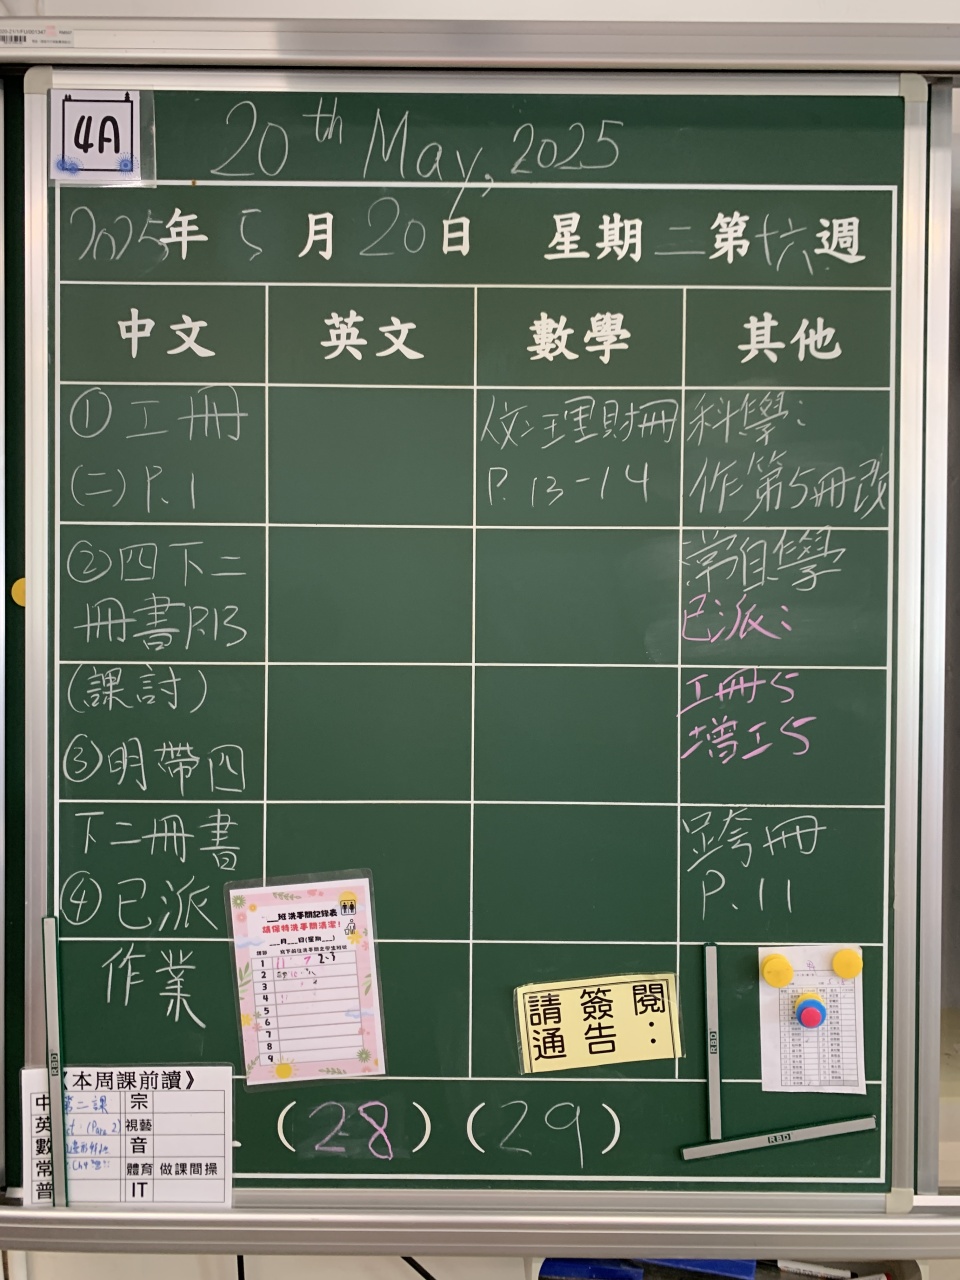 4A
20th May, 2025
2025年 5月 20日 星期二 第十六週
中文 英文 數學 其他
①工冊
(二) P.1
②四下二
冊書P.13
(課討)
③明帶四
下二冊書
④已派
作業
理財冊
P. 13-14
科學:
作第5冊改
常自學
已派:
工冊5
增工5
跨冊
P. 11
班洗手間記錄表
請保持洗手間清潔!
___月___日(星期___)
1
2
3
4
5
6
7
8
9
請簽閱
通告:
(28) (29)
RBD
RBD
RBD
《本周課前讀》
中 第二課 宗
英 (Para 2) 視藝
數 音
常 體育 做課間操
普 IT